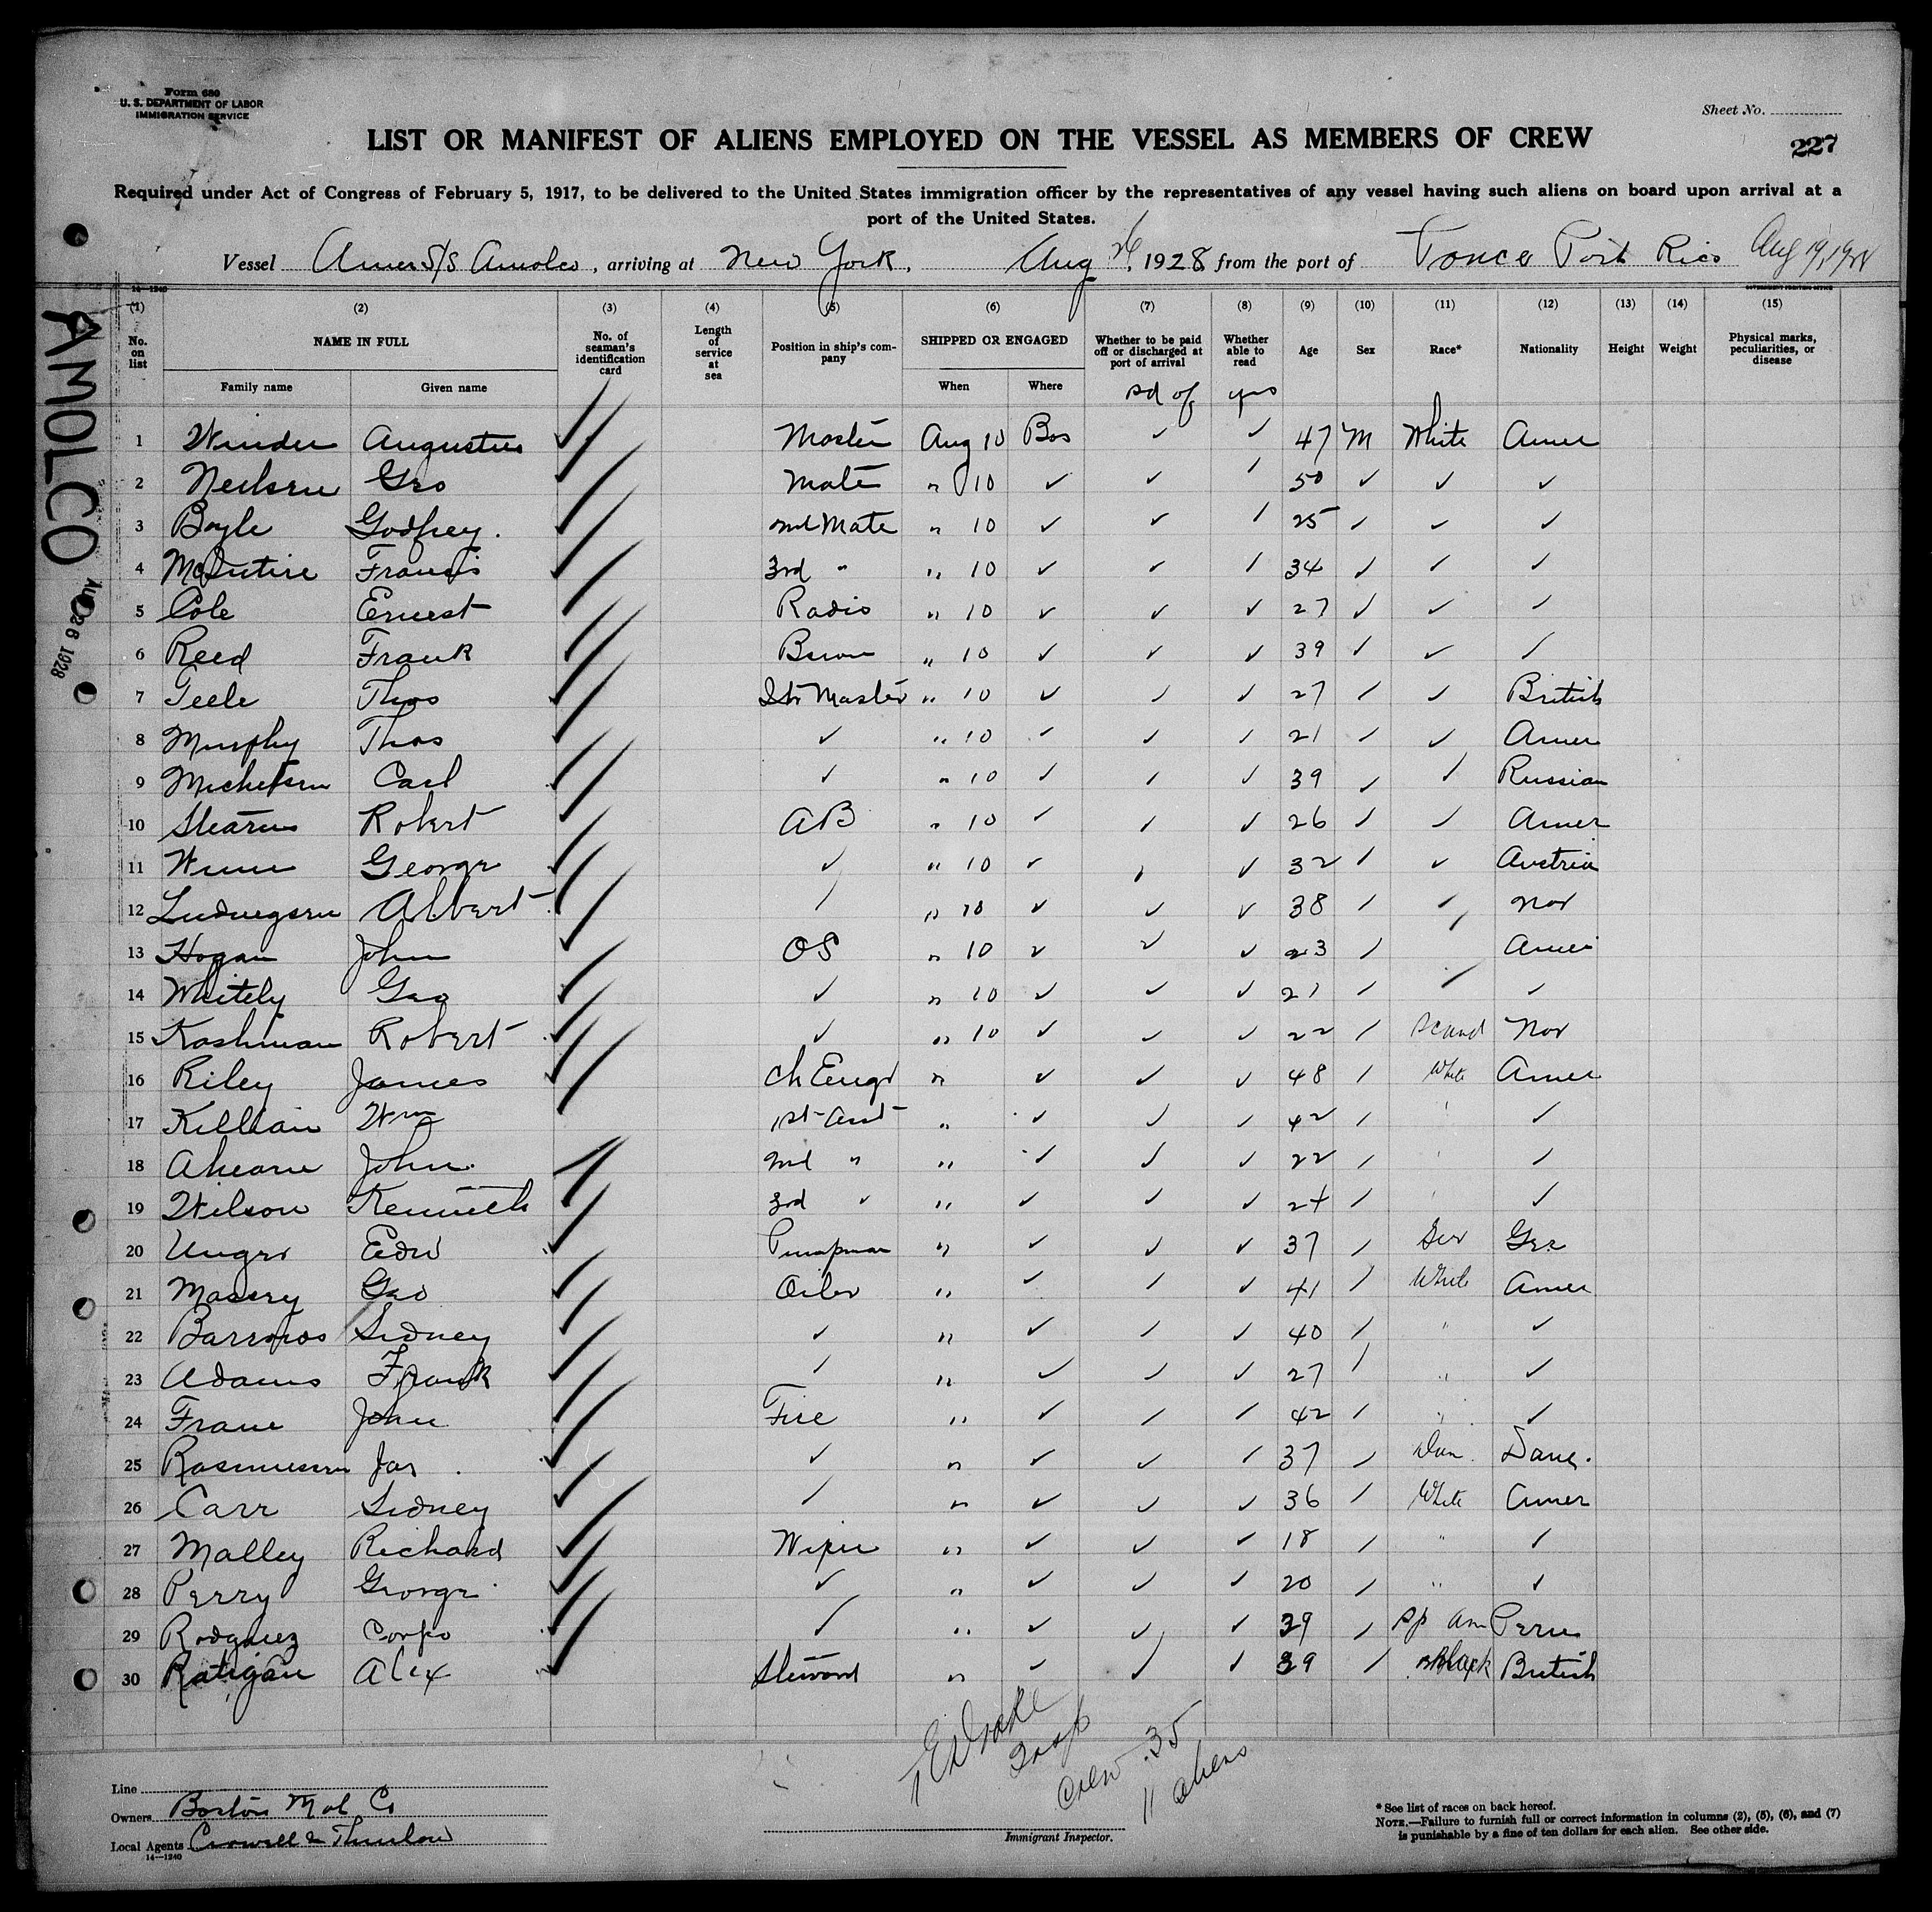 Form 680
U. S. DEPARTMENT OF LABOR
IMMIGRATION SERVICE
Sheet No.
LIST OR MANIFEST OF ALIENS EMPLOYED ON THE VESSEL AS MEMBERS OF CREW
227
Required under Act of Congress of February 5, 1917, to be delivered to the United States immigration officer by the representatives of any vessel having such aliens on board upon arrival at a
port of the United States.
Vessel Amer S/S Amolco, arriving at New York, Aug 26, 1928 from the port of Ponce Port Rico Aug 19, 1928
14—1240
GOVERNMENT PRINTING OFFICE
AMOLCO
AUG 26 1928
(1) (2) (3) (4) (5) (6) (7) (8) (9) (10) (11) (12) (13) (14) (15)
No. on list
NAME IN FULL
Family name Given name
No. of seaman's identification card
Length of service at sea
Position in ship's company
SHIPPED OR ENGAGED
When Where
Whether to be paid off or discharged at port of arrival
Whether able to read
Age Sex Race* Nationality Height Weight
Physical marks, peculiarities, or disease
pd off yes
1 Winder Augustus ✓ Master Aug 10 Bos ✓ ✓ 47 M White Amer
2 Neilsen Geo Mate " 10 ✓ ✓ ✓ 50 ✓ ✓ ✓
3 Boyle Godfrey. 2nd Mate " 10 ✓ ✓ ✓ 25 ✓ ✓ ✓
4 McIntire Francis 3rd " " 10 ✓ ✓ ✓ 34 ✓ ✓ ✓
5 Cole Ernest Radio " 10 ✓ ✓ ✓ 27 ✓ ✓ ✓
6 Reed Frank " 10 ✓ ✓ ✓ 39 ✓ ✓ ✓
7 Teele Thos Qtr Master " 10 ✓ ✓ ✓ 27 ✓ ✓ British
8 Murphy Thos ✓ " 10 ✓ ✓ ✓ 21 ✓ ✓ Amer
9 Michelson Carl ✓ " 10 ✓ ✓ ✓ 39 ✓ ✓ Russian
10 Stearns Robert AB " 10 ✓ ✓ ✓ 26 ✓ ✓ Amer
11 George ✓ " 10 ✓ ✓ ✓ 32 ✓ ✓ Austria
12 Ludwigsen Albert ✓ " 10 ✓ ✓ ✓ 38 ✓ ✓ Nor
13 Hogan John OS " 10 ✓ ✓ ✓ 23 ✓ Amer
14 Whitely Geo ✓ " 10 ✓ ✓ ✓ 21 ✓ ✓ ✓
15 Kashman Robert ✓ " 10 ✓ ✓ ✓ 22 ✓ Scand Nor
16 Riley James Ch Engr " ✓ ✓ ✓ 48 ✓ White Amer
17 Killian Wm 1st Asst " ✓ ✓ ✓ 42 ✓ ✓
18 Ahearn John. 2nd " " ✓ ✓ ✓ 22 ✓ ✓
19 Wilson Kenneth 3rd " " ✓ ✓ ✓ 24 ✓ ✓
20 Unger Edw Pumpman " ✓ ✓ ✓ 37 ✓ Ger Ger
21 Massry Geo Oiler " ✓ ✓ ✓ 41 ✓ White Amer
22 Barrows Sidney ✓ " ✓ ✓ ✓ 40 ✓ " ✓
23 Adams Frank ✓ " ✓ ✓ ✓ 27 ✓ " ✓
24 Frane John Fire " ✓ ✓ ✓ 42 ✓ " ✓
25 Rasmussen Jas ✓ " ✓ ✓ ✓ 37 ✓ Dan. Dane.
26 Carr Sidney ✓ " ✓ ✓ ✓ 36 ✓ White Amer
27 Malley Richard Wiper " ✓ ✓ ✓ 18 ✓ " ✓
28 Perry George ✓ " ✓ ✓ ✓ 20 ✓ " ✓
29 Rodgriuez Corpo ✓ " ✓ ✓ ✓ 39 ✓ Sp Am Peru
30 Ratigan Alex Steward " ✓ ✓ ✓ 39 ✓ Black British
Crew 35
11 aliens
Line
Owners Boston Mol Co
Local Agents Crowell & Thurlow
14—1240
Immigrant Inspector.
* See list of races on back hereof.
NOTE.—Failure to furnish full or correct information in columns (2), (5), (6), and (7)
is punishable by a fine of ten dollars for each alien. See other side.